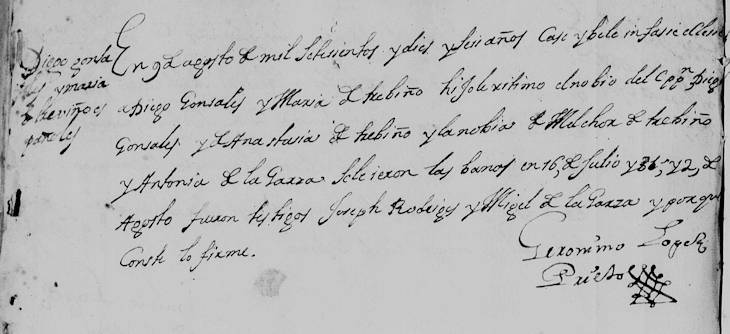 Diego gonsa
les y maria
de treviño es
pañoles
En 9 de agosto de mil setesientos y dies y seis años Case y bele in fasie eclesie
a Diego Gonsales y Maria de trebiño hijo lexitimo el nobio del Cppn Diego
Gonsales y de Anastasia de trebiño y la nobia de Melchor de trebiño
y Antonia de la Garza se leieron las banas en 16, de Julio y 26, y 2, de
Agosto fueron testigos Joseph Rodriges y Migel de la Garza y porque
Conste lo firme.
Geronimo Lopez
Prieto